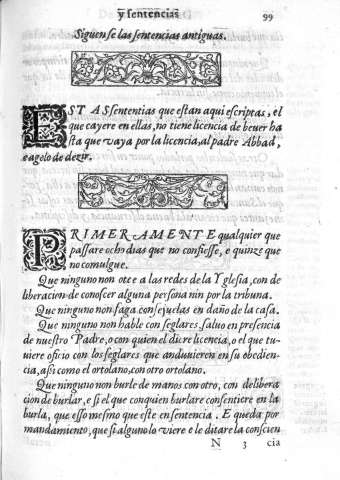 y sentencias 99
Siguense las sentencias antiguas.
EST AS sententias que estan aqui escriptas, el
que cayere en ellas, no tiene licencia de beuer ha
sta que vaya por la licencia, al padre Abbad,
e agolo de dezir.
PRIMERAMENTE qualquier que
passare ocho dias que no confiesse, e quinze que
no comulgue.
Que ninguno non otee a las redes de la Yglesia, con de
liberacion de conoscer alguna persona nin por la tribuna.
Que ninguno non faga consejuelas en daño de la casa.
Que ninguno non hable con seglares, saluo en presencia
de nuestro Padre, o con quien el dicre licencia, o el que tu-
uiere oficio con los seglares que anduuieren en su obedien-
cia, asi como el ortolano, con otro ortolano.
Que ninguno non burle de manos con otro, con delibera
cion de burlar, e si el que conquien burlare consentiere en la
burla, que esso mesmo que este en sentencia. E queda por
mandamiento, que si alguno lo viere e le ditare la conscien
N 3 cia